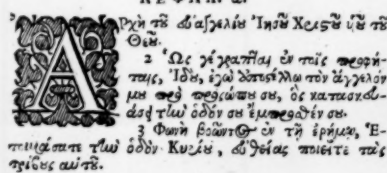 ΚΕΦΑΛ. α.
ἈΡχὴ τοῦ εὐαγγελίου Ἰησοῦ Χριστοῦ υἱοῦ τοῦ
Θεοῦ.
2 Ὡς γέγραπται ἐν τοῖς προφή-
ταις, Ἰδου, ἐγὼ ἀποστέλλω τὸν ἄγγελόν
μου πρὸ προσώπου σου, ὃς κατασκευ-
άσει τὴν ὁδόν σου ἔμπροσθέν σου.
3 Φωνὴ βοῶντος ἐν τῇ ἐρήμῳ, Ἑ-
τοιμάσατε τὴν ὁδὸν Κυρίου, εὐθείας ποιεῖτε τὰς
τρίβους αὐτοῦ.